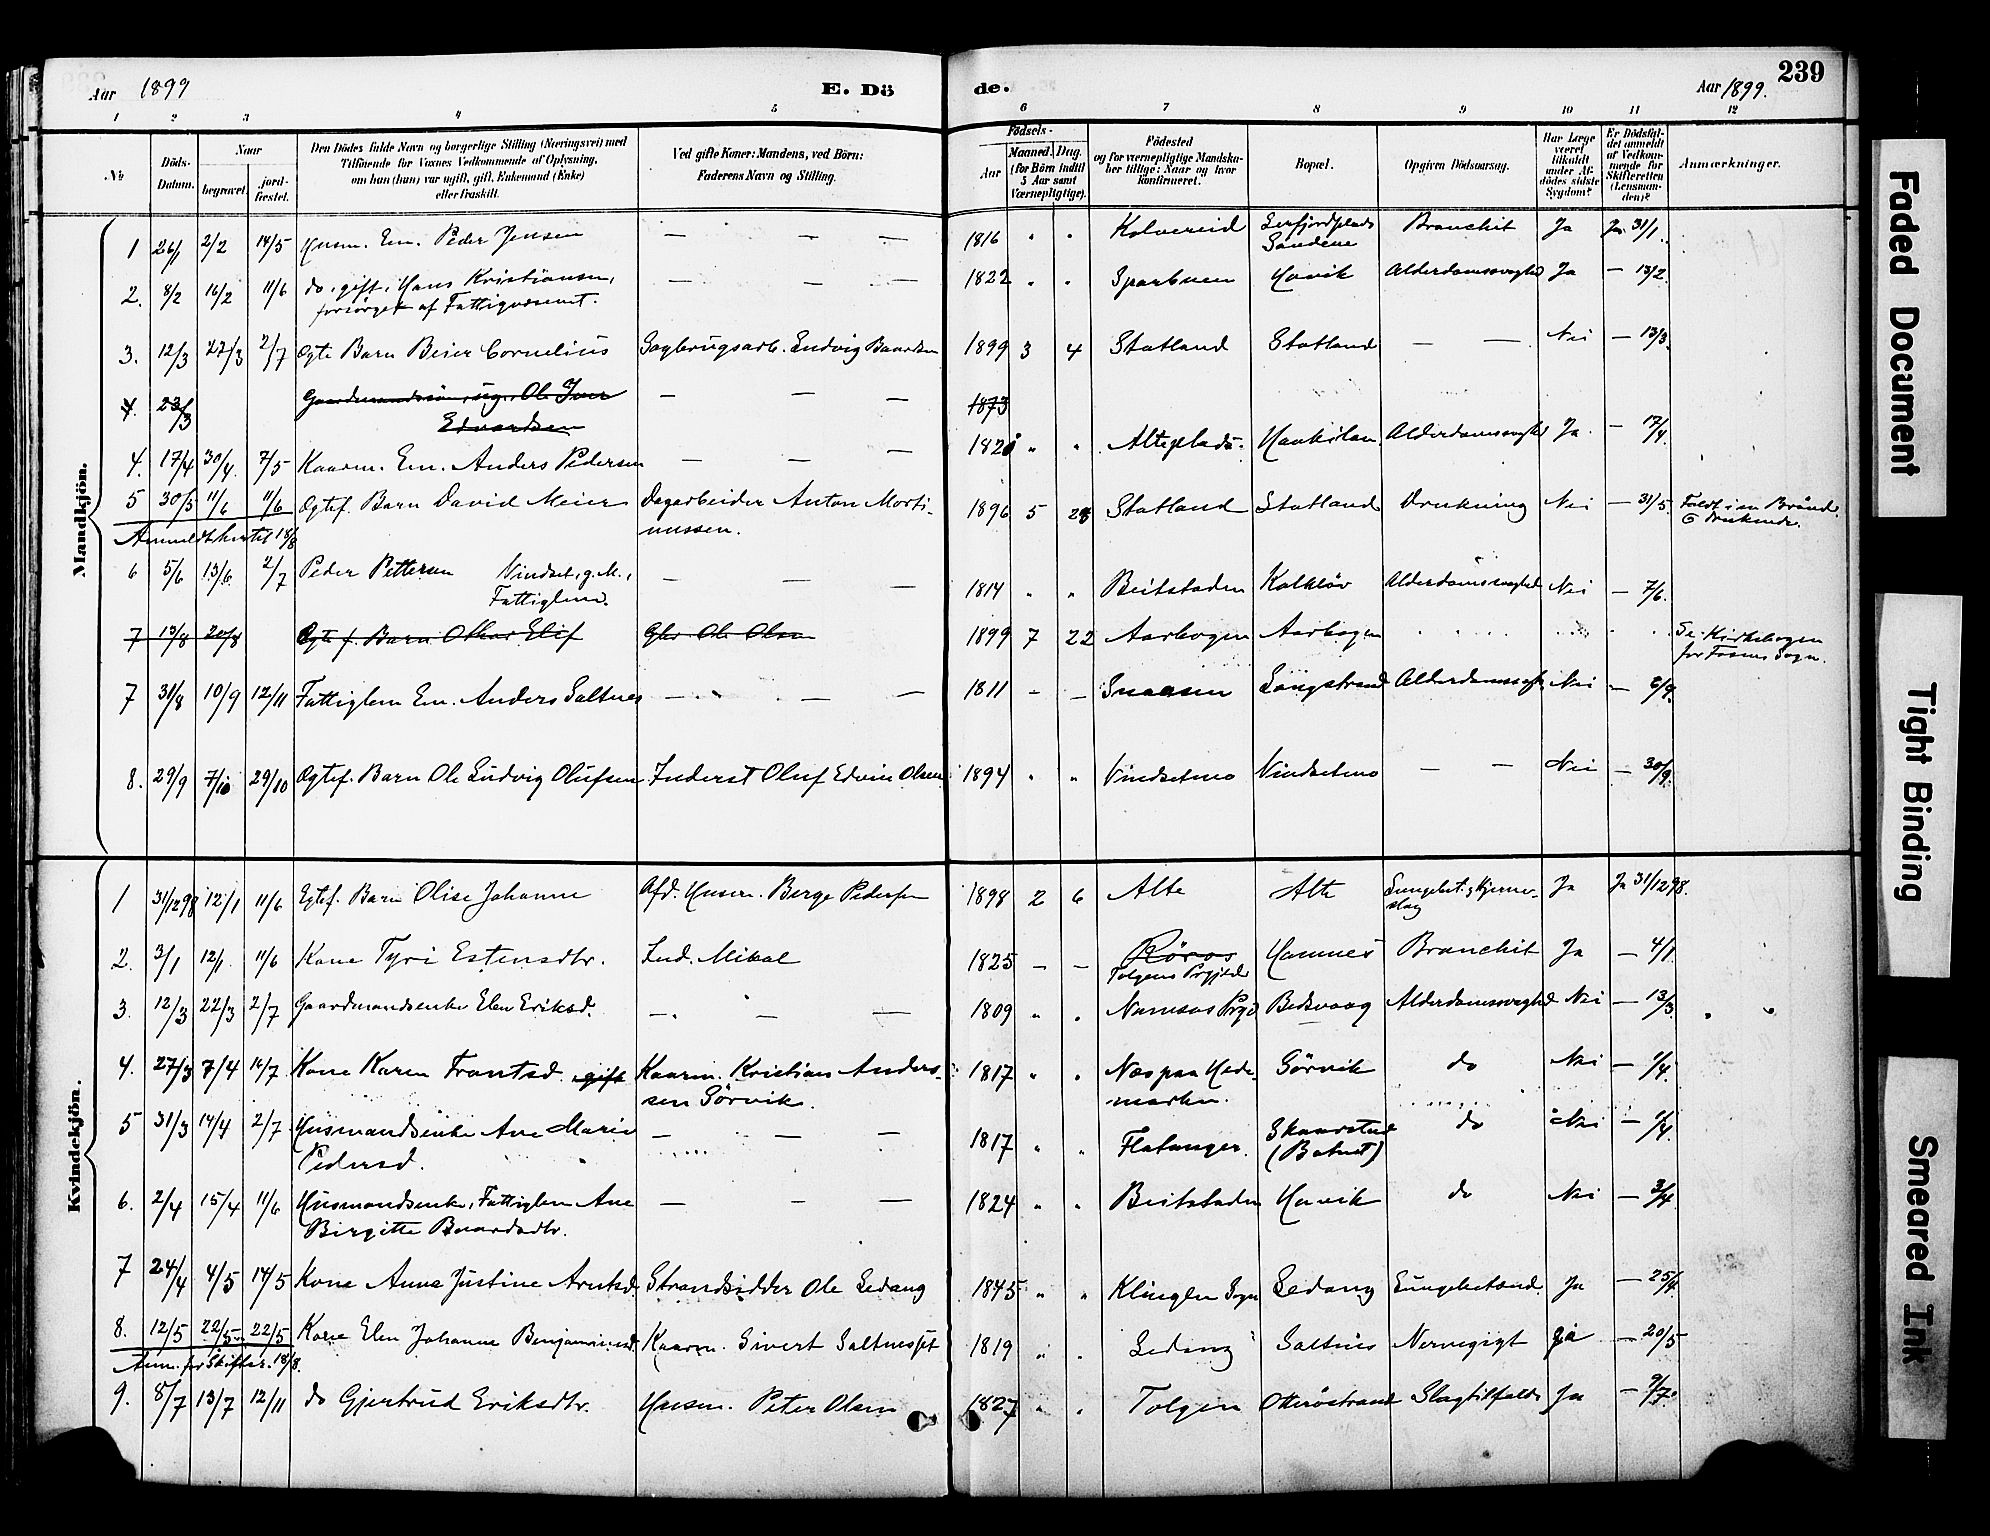 Aar 1899 E. Dö
de. Aar 1899. 239
1 2 3 4 5 6 7 8 9 10 11 12
No
Döds-
Datum.
Naar
begravet.
jord-
fæstet.
Den Dödes fulde Navn og borgerlige Stilling (Næringsvei) med
Tilföiende for Voxnes Vedkommende af Oplysning,
om han (hun) var ugift, gift, Enkemand (Enke)
eller fraskilt.
Ved gifte Koner: Mandens, ved Börn:
Faderens Navn og Stilling.
Födsels-
Aar
Maaned. Dag.
(for Börn indtil
5 Aar samt
Værnepligtige).
Födested
og for værnepligtige Mandska-
ber tillige: Naar og hvor
konfirmeret.
Bopæl.
Opgiven Dödsaarsag.
Har Læge
været
tilkaldt
under Af-
dödes sidste
Sygdom?
Er Dödsfal-
det anmeldt
af Vedkom-
mende for
Skifteretten
(Lensman-
den)?
Anmærkninger.
Mandkjön.
1 26/1 2/2 14/5 Husm. Em. Peder Jensen — — — 1816 " " Kolvereid Sandene Bronchit Ja Ja 31/1
2. 8/2 16/2 11/6 do. gift. Hans Kristiansen, — — — 1822 " " Sparbuen Hovik Alderdomssvaghed Ja — 13/2
forsörget af Fattigvæsenet.
3. 12/3 27/3 2/7 Ægte Barn Beier Cornelius Sagbrugsarb. Ludvig Baardsen 1899 3 4 Statland Statland — — Nei — 13/3.
4. 23/3 Gaardmandssön, ug. Ole Iver — — — 1873
Edvardsen
4. 17/4 30/4 7/5 Kaarm. Em. Anders Pedersen — — — 1820 " " Alteplads. Alderdomssvaghed Ja. — 17/4.
5 30/5 11/6 11/6 Ægtef. Barn David Meier Dagarbeider Anton Morti- 1896 5 28 Statland Statland Drukning Nei — 31/5 Faldt i en Brönd
nussen. & druknede.
Anmeldt skiftet 18/8
6 5/6 13/6 2/7 Peder Petterson Vindset, g. M., — — — 1814 " " Beitstaden Alderdomssvaghed Nei — 7/6.
Fattiglem.
7 13/8 20/8 Ægte f. Barn Othar Elif Gbr Ole Olsen 1899 7 22 Aarbogen Aarbogen Se Kirkebogen
for Fosnes Sogn.
7 31/8 10/9 12/11 Fattiglem Em. Anders Saltnes — — — 1811 - - Snaasen Langstrand Alderdomssvagh. Nei — 6/9.
8. 29/9 7/10 29/10 Ægtef. Barn Ole Ludvig Olufsen Inderst Oluf Edvin Olsen 1894 " " Vindsetmo Vindsetmo — — Nei — 30/9.
Kvindekjön.
1 31/12 98 12/1 11/6 Egtef. Barn Olise Johanne Afd. Husm. Berge Pedersen 1898 2 6 Alte Alte Lungebet. & Hjerne- Ja Ja 31/12 98.
slag
2. 3/1 12/1 11/6 Kone Tyri Estensdtr. Ind. Mikal 1825 — — Röros Hamnes Bronchit Ja — 4/1
Tolgens Prgjeld
3. 12/3 22/3 2/7 Gaardmandsenke Elen Eriksd. — — — 1809 " " Namsos Prgj Bedsvaag Alderdomssvaghed Nei — 13/3.
4. 27/3 7/4 16/7 Kone Karen Frantsd. gift Kaarm. Kristian Anders- 1817 " " Næs paa Hede- Sörvik do Nei — 1/4.
sen Sörvik. marken.
5 31/3 14/4 2/7 Husmandsenke Ane Marie — — — 1817 " " Flatanger. Skaarstad do Nei — 1/4.
Pedersd. (Botnet)
6. 2/4 15/4 11/6 Husmandsenke, Fattiglem Ane — — — 1824 " " Beitstaden Hovik do Nei — 3/4.
Birgitte Baardsdtr.
7 24/4 4/5 14/5 Kone Anna Justine Arntsd. Strandsidder Ole Sedang 1845 " " Klingen Sogn Sedang Lungebetænd. Ja — 25/4
8. 12/5 22/5 22/5 Kone Elen Johanne Benjaminsd. Kaarm. Sivert Saltnesset 1819 " " Sedang Saltnes Nervegigt ja — 20/5
Anm. for Skifter. 18/8.
9. 8/7 13/7 12/11 do Gjertrud Eriksdtr. Husm. Peter Olsen 1827 " " Tolgen Otteröstrand Slagtilfælde Ja — 9/7.
Faded Document
Tight Binding
Smeared Ink